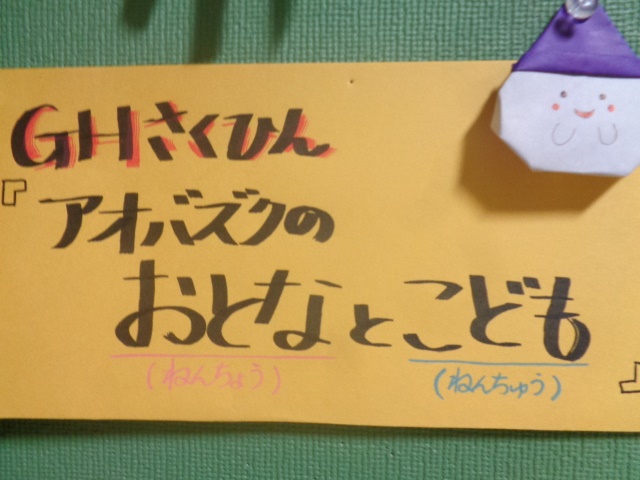 GHさくひん
『アオバズクの
おとなとこども』
(ねんちょう) (ねんちゅう)